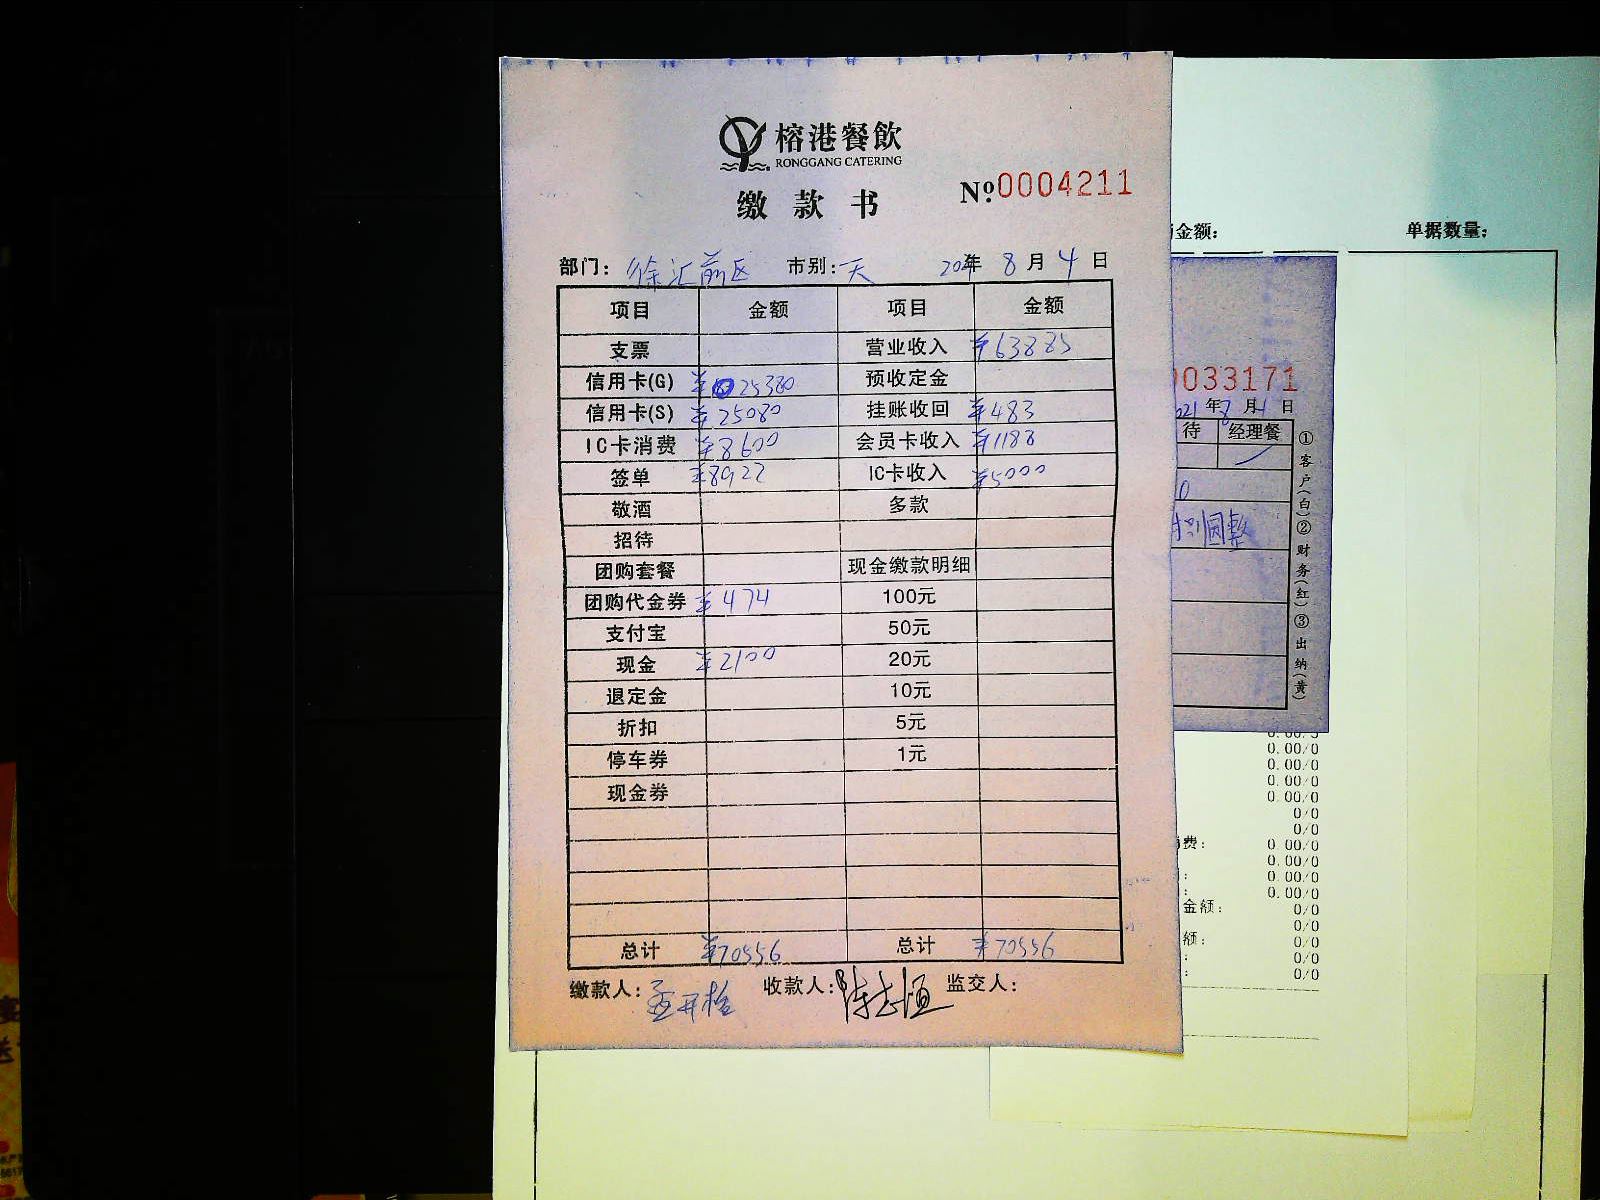 榕港餐飲
RONGGANG CATERING
缴款书 №0004211
部门: 徐汇前区 市别: 天 2021年 8月 4日
项目 金额 项目 金额
支票 营业收入 ¥63885
信用卡(G) ¥25380 预收定金
信用卡(S) ¥25080 挂账收回 ¥483
IC卡消费 ¥8600 会员卡收入 ¥1188
签单 ¥8922 IC卡收入 ¥5000
敬酒 多款
招待
团购套餐 现金缴款明细
团购代金券 ¥474 100元
支付宝 50元
现金 ¥2100 20元
退定金 10元
折扣 5元
停车券 1元
现金券
总计 ¥70556 总计 ¥70556
缴款人: 收款人: 陈志恒 监交人:
金额: 单据数量:
0033171
2021年8月4日
待 经理餐
①客户(白)②财务(红)③出纳(黄)
0.00/0
0.00/0
0.00/0
0.00/0
0/0
0/0
费: 0.00/0
0.00/0
0.00/0
金额: 0/0
0/0
额: 0/0
0/0
0/0